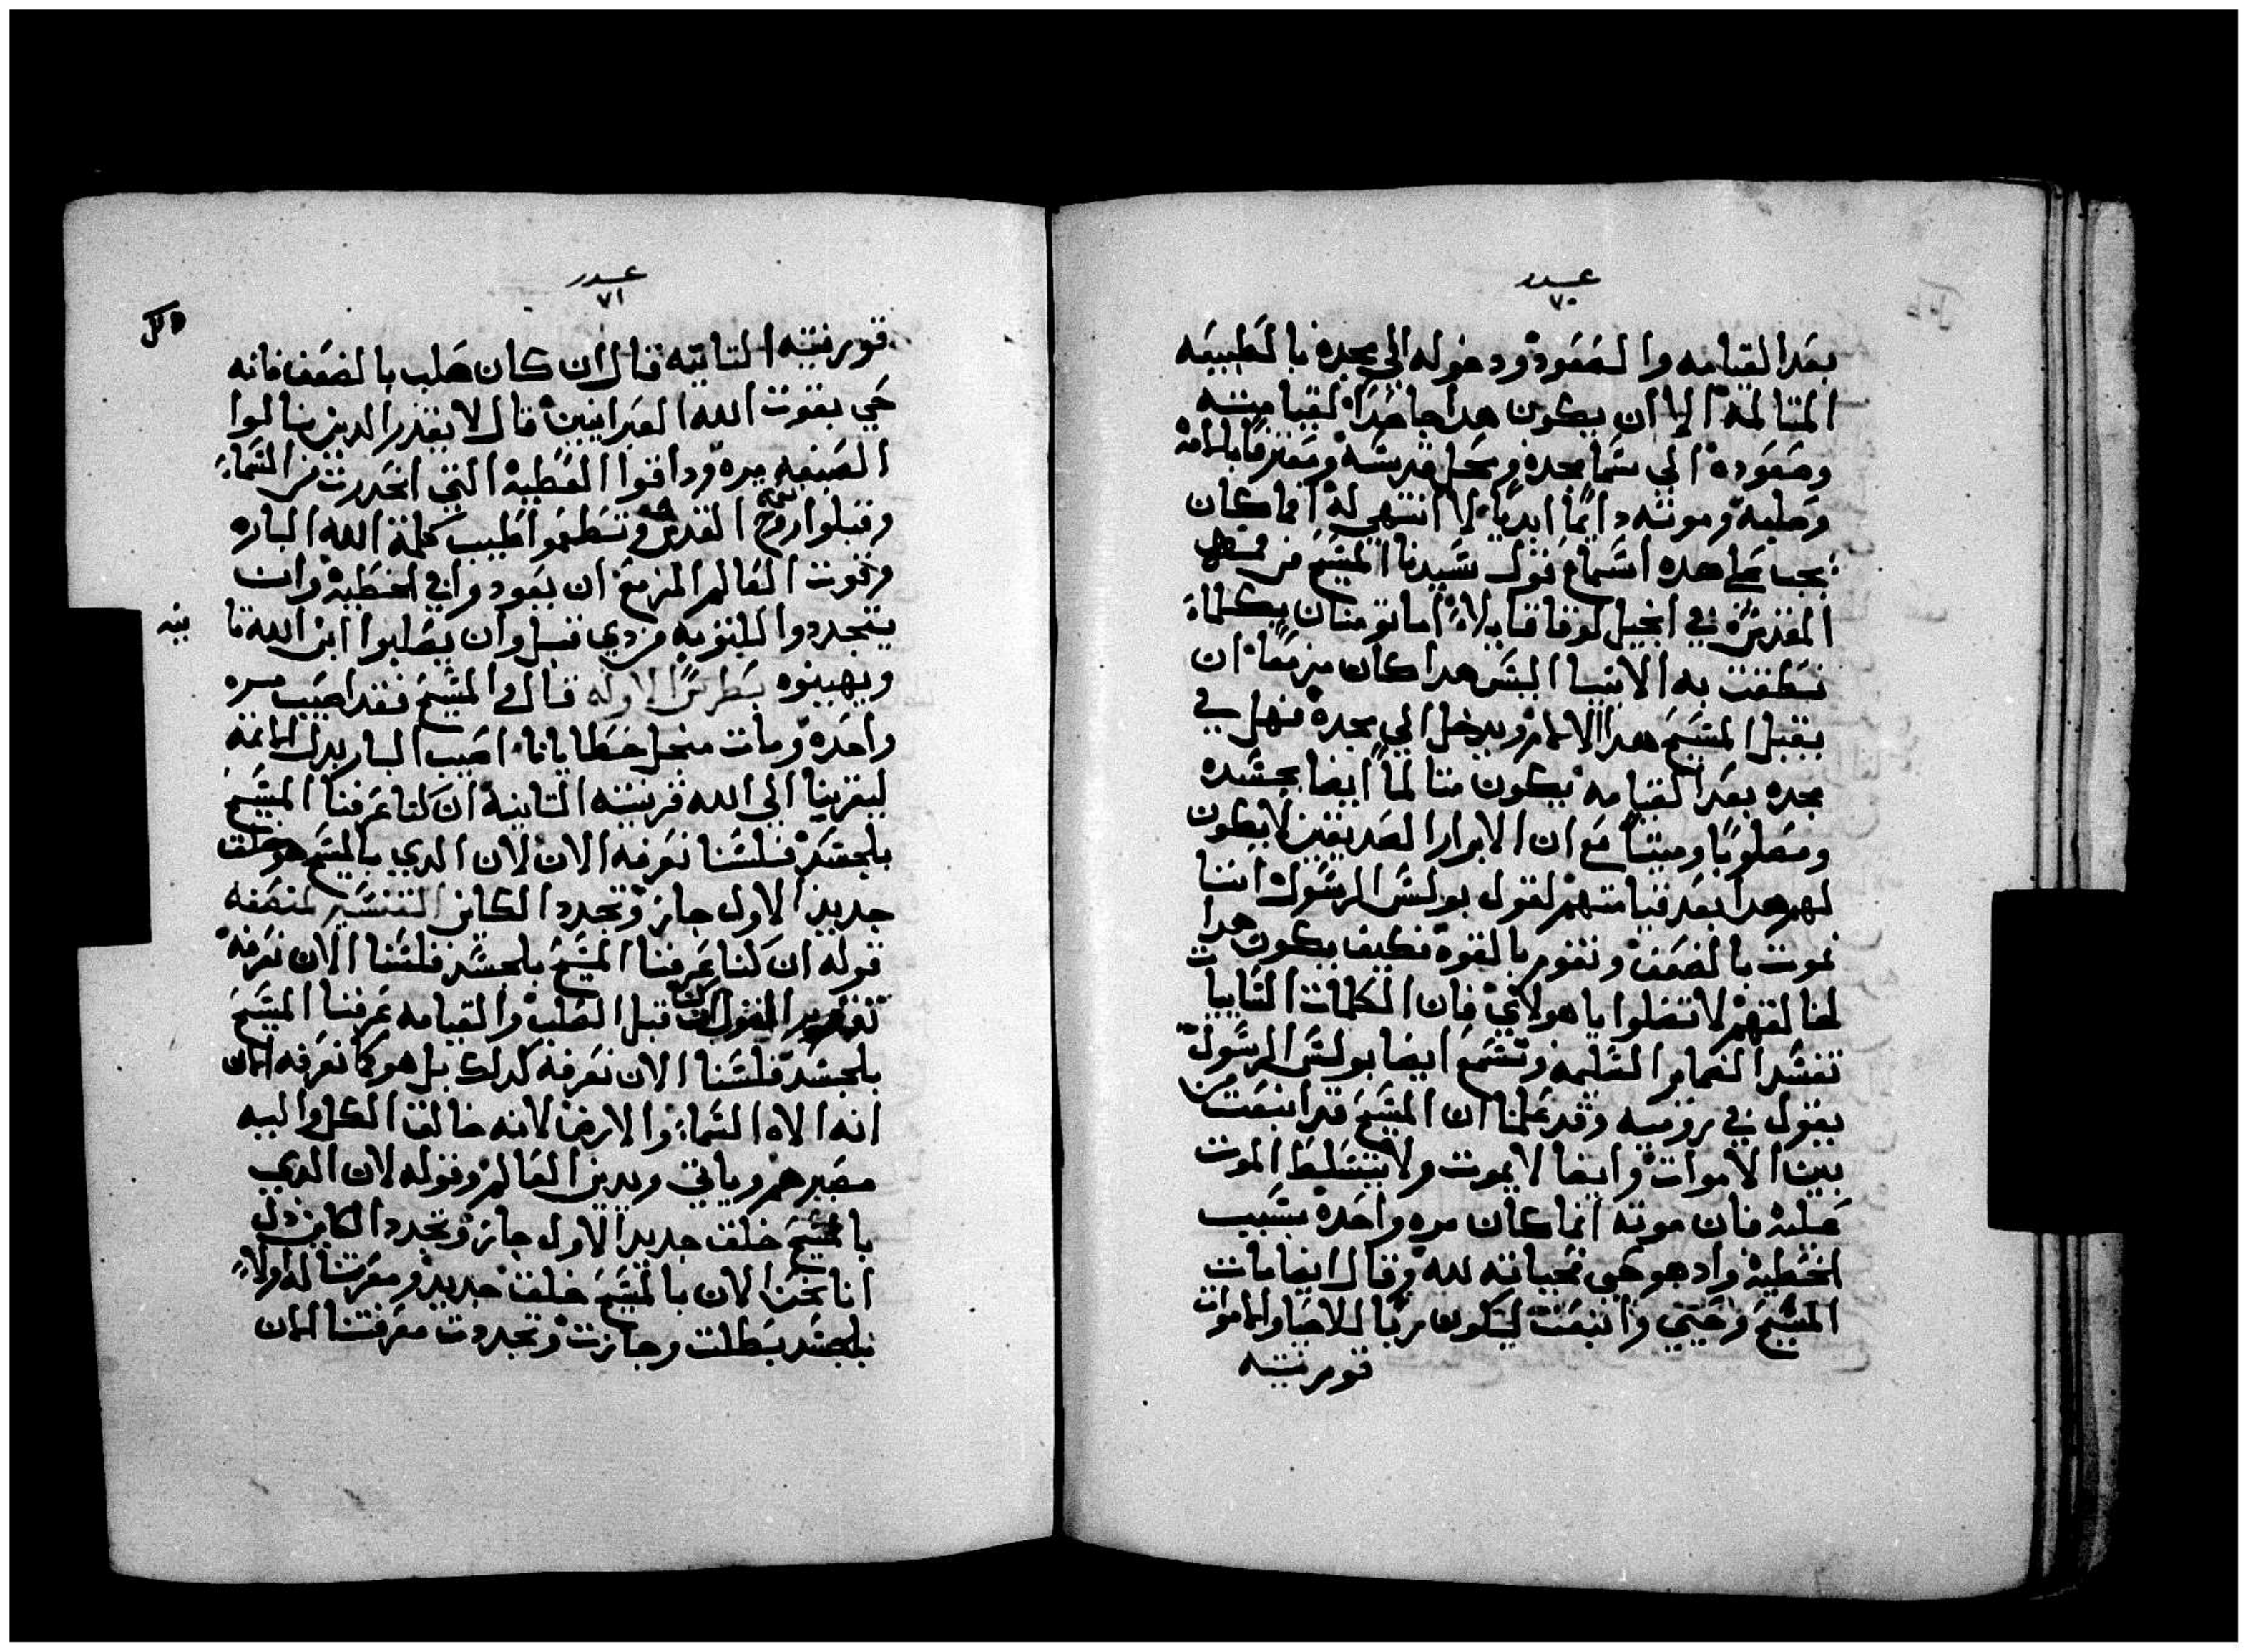 عدد
٧٠
بعد القيامه والصعود ودخوله الي مجده بالطبيعه
المتالمة الا ان يكون هدا جاحدا لقيامته
وصعوده الي سما مجده ومحل قدسه ومعترفا بالامه
وصلبه وموته دايمًا ابديًا لا انتهي له افما كان
يجب علي هده اسماع قول سيدنا المسيح من فمه
المقدس في انجيل لوقا قايلاً اما تومنان بكلما
نطقت به الانبيا اليس هدا كان مزمعًا ان
يقبل المسيح هده الالام ويدخل الي مجده فهل في
مجده بعد القيامه يكون متالمًا ايضا بجسده
ومصلوبًا وميتًا مع ان الابرار الصديقين لا يكون
لهم هدا بعد قيامتهم لقول بولس الرسول اننا
نموت بالضعف ونقوم بالقوه فكيف يكون هدا
لخالقهم لا تضلوا يا هولاي فان الكلمات الخبيثات
تفسد الضماير السليمه وتسمع ايضا بولس الرسول
يقول في روميه وقد علمنا ان المسيح قد انبعث من
بين الاموات وايضا لا يموت ولا يتسلط الموت
عليه فان موته انما كان مره واحده بسبب
الخطيه واد هو حي فحياته لله وقال ايضا مات
المسيح وحيي وانبعث ليكون ربا للاحيا والاموات
قورنتيه
عدد
٧١
قورنتيه التانيه قال ان كان صلب بالضعف فانه
حي بقوت الله العبرانيين قال لا يقدر الدين نالوا
الصبغه مره وداقوا العطيه التي انحدرت من السما
وقبلوا روح القدس وتطعموا طيب كلمة الله الباره
وقوت العالم المزمع ان يعودوا في الخطيه وان
يتجددوا للتوبه من دي قبل وان يصلبوا ابن الله تا
نيه
ويهينوه بطرس الاوله قال والمسيح فقد اصيب مره
واحده ومات منجل خطايانا اصيب البار بدل الاتمة
ليقربنا الي الله قرنتيه التانية ان كنا عرفنا المسيح
بلجسد فلسنا نعرفه الان لان الدي بالمسيح هو خلق
جديد الاول جاز وتجدد الكاين التفسير لمصنفه
قوله ان كنا عرفنا المسيح بلجسد فلسنا الان نعرفه
قبل الصلب والقيامه عرفنا المسيح
بلجسد فلسنا الان نعرفه كدلك بل هو كما نعرفه الان
انه الاه السما والارض لانه خالق الكل واليه
مصيرهم وياتي ويدين العالم وقوله لان الدي
بالمسيح خلق جديد الاول جاز وتجدد الكاين دل
انا نحن الان بالمسيح خلق جديد ومعرفتنا له اولاً
بلجسد بطلت وجازت وتجددت معرفتنا الان